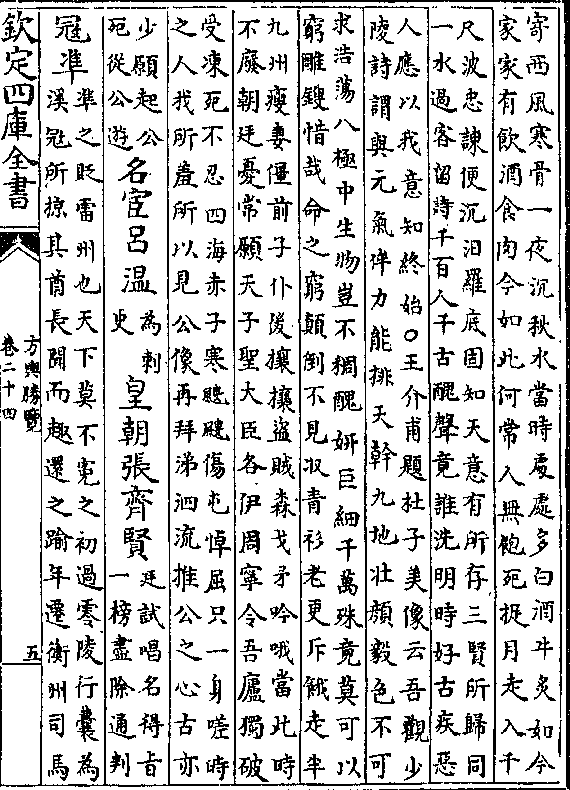 寄西風寒骨一夜沉秋水當時處處多白酒牛炙如今
家家有飲酒食肉今如此何常人無飽死捉月走入千
尺波忠諫便沉汨羅底固知天意有所存三賢所歸同
一水過客留詩千百人千古醜聲竟誰洗明時好古疾惡
人應以我意知終始○王介甫題杜子美像云吾觀少
陵詩謂與元氣侔力能排天幹九地壯顔毅色不可
求浩蕩八極中生物豈不稠醜妍巨細千萬殊竟莫可以
窮雕鎪惜哉命之窮顛倒不見收青衫老更斥餓走半
九州瘦妻僵前子仆後攘攘盗賊森戈矛吟哦當此時
不廢朝廷憂常願天子聖大臣各伊周寧令吾廬獨破
受凍死不忍四海赤子寒颼颼傷屯悼屈只一身嗟時
之人我所羞所以見公像再拜涕泗流推公之心古亦
少願起公
死從公遊
名宦吕温
為刺
史
皇朝張齊賢
廷試唱名得旨
一榜盡除通判
冦準
準之貶雷州也天下莫不寃之初過零陵行囊為
溪冦所掠其酋長聞而趣還之踰年遷衡州司馬
欽定四庫全書
方輿勝覽
卷二十四
五